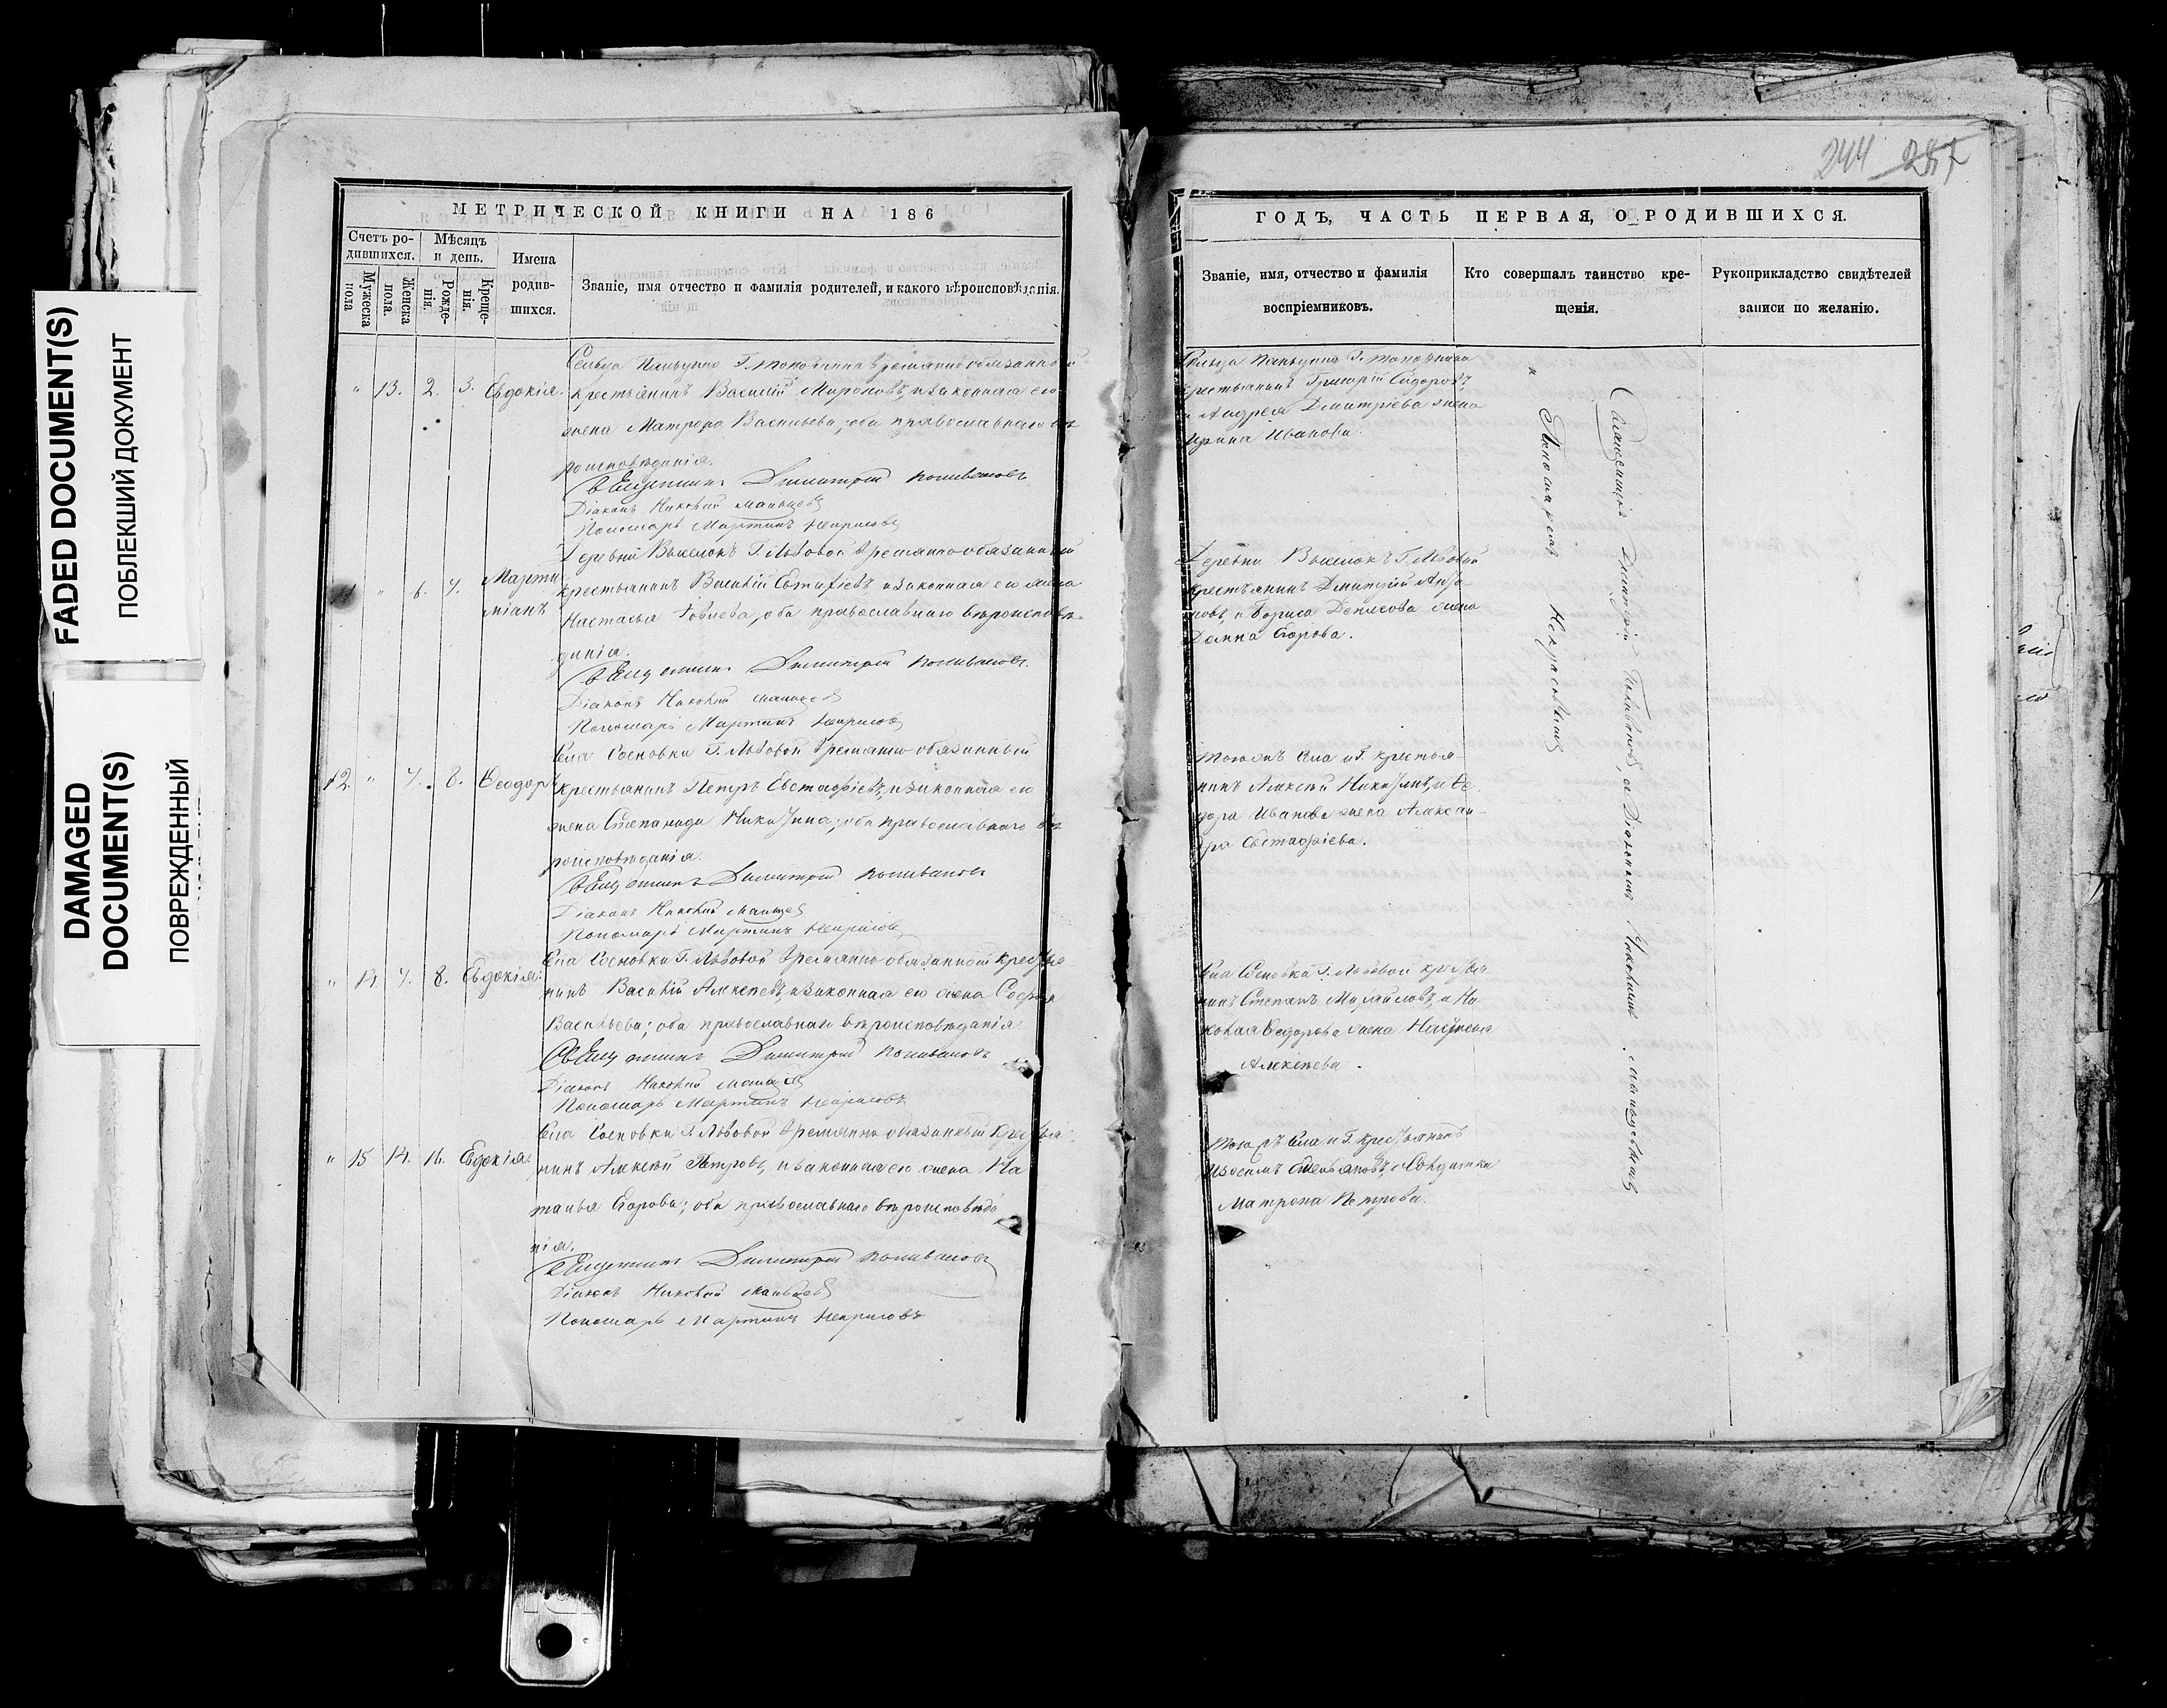 FADED DOCUMENT(S)
ПОБЛЕКШИЙ ДОКУМЕНТ
DAMAGED
DOCUMENT(S)
ПОВРЕЖДЕННЫЙ
МЕТРИЧЕСКОЙ КНИГИ НА 186
Счетъ ро-
дившихся.
Мужеска
пола
Женска
пола.
Мѣсяцъ
и день.
Рожде-
нія.
Креще-
нія.
Имена
родив-
шихся.
Званіе, имя отчество и фамилія родителей, и какого вѣроисповѣданія.
" 13. 2. 3. Евдокія.
временнообязанный
крестьянинъ Василій Мироновъ, и законная его
жена Матрона Васильева, оба православнаго вѣ
роисповѣданія.
Священникъ Димитрій Поливановъ
Діаконъ Николай Мальцевъ
Пономарь Мартинъ Некрасовъ
" 6. 7. Марти
ніанъ
Деревни Выселокъ Г. Львовой временнообязанный
крестьянинъ Василій Евстафіевъ, и законная его жена
Настасья оба православнаго вѣроисповѣ-
данія.
Священникъ Димитрій Поливановъ
Діаконъ Николай Мальцевъ
Пономарь Мартинъ Некрасовъ
12. " 7. 8. Ѳеодоръ
Села Сосновки Г. Львовой временнообязанный
крестьянинъ Петръ Евстафіевъ, и законная его
жена Степанида Никитина; оба православнаго вѣ
роисповѣданія.
Священникъ Димитрій Поливановъ
Діаконъ Николай Мальцевъ
Пономарь Мартинъ Некрасовъ
" 14 7. 8. Евдокія.
Села Сосновки Г. Львовой временнообязанный крестья
нинъ Василій Алексѣевъ, и законная его жена Софья
Васильева; оба православнаго вѣроисповѣданія.
Священникъ Димитрій Поливановъ
Діаконъ Николай Мальцевъ
Пономарь Мартинъ Некрасовъ
" 15 14. 16. Евдокія.
Села Сосновки Г. Львовой временнообязанный крестья
нинъ Алексѣй Петровъ, и законная его жена На
талья Егорова; оба православнаго вѣроисповѣда
нія.
Священникъ Димитрій Поливановъ
Діаконъ Николай Мальцевъ
Пономарь Мартинъ Некрасовъ
244 287
ГОДЪ, ЧАСТЬ ПЕРВАЯ, О РОДИВШИХСЯ.
Званіе, имя, отчество и фамилія
воспріемниковъ.
Кто совершалъ таинство кре-
щенія.
Рукоприкладство свидѣтелей
записи по желанію.
крестьянинъ Григорій Сидоровъ,
и Андрея Дмитріева жена
Ирина Иванова.
Деревни Выселокъ Г. Львовой
крестьянинъ Дмитрій
и Бориса Денисова жена
Домна Егорова.
Тогожъ села и Г. крестья-
нинъ Алексѣй Никитинъ, и Ѳе
дора Иванова жена Алексан-
дра Евстафіева.
Села Сосновки Г. Львовой крестья
нинъ Степанъ Михайловъ, и Ни
колая Ѳедорова жена Настасья
Алексѣева.
Тогожъ села и Г. крестьянинъ
Изосимъ Степановъ, и Солдатка
Матрона Петрова.
Священникъ Димитрій Поливановъ, съ Діакономъ Николаемъ Мальцевымъ
и Пономаремъ Некрасовымъ